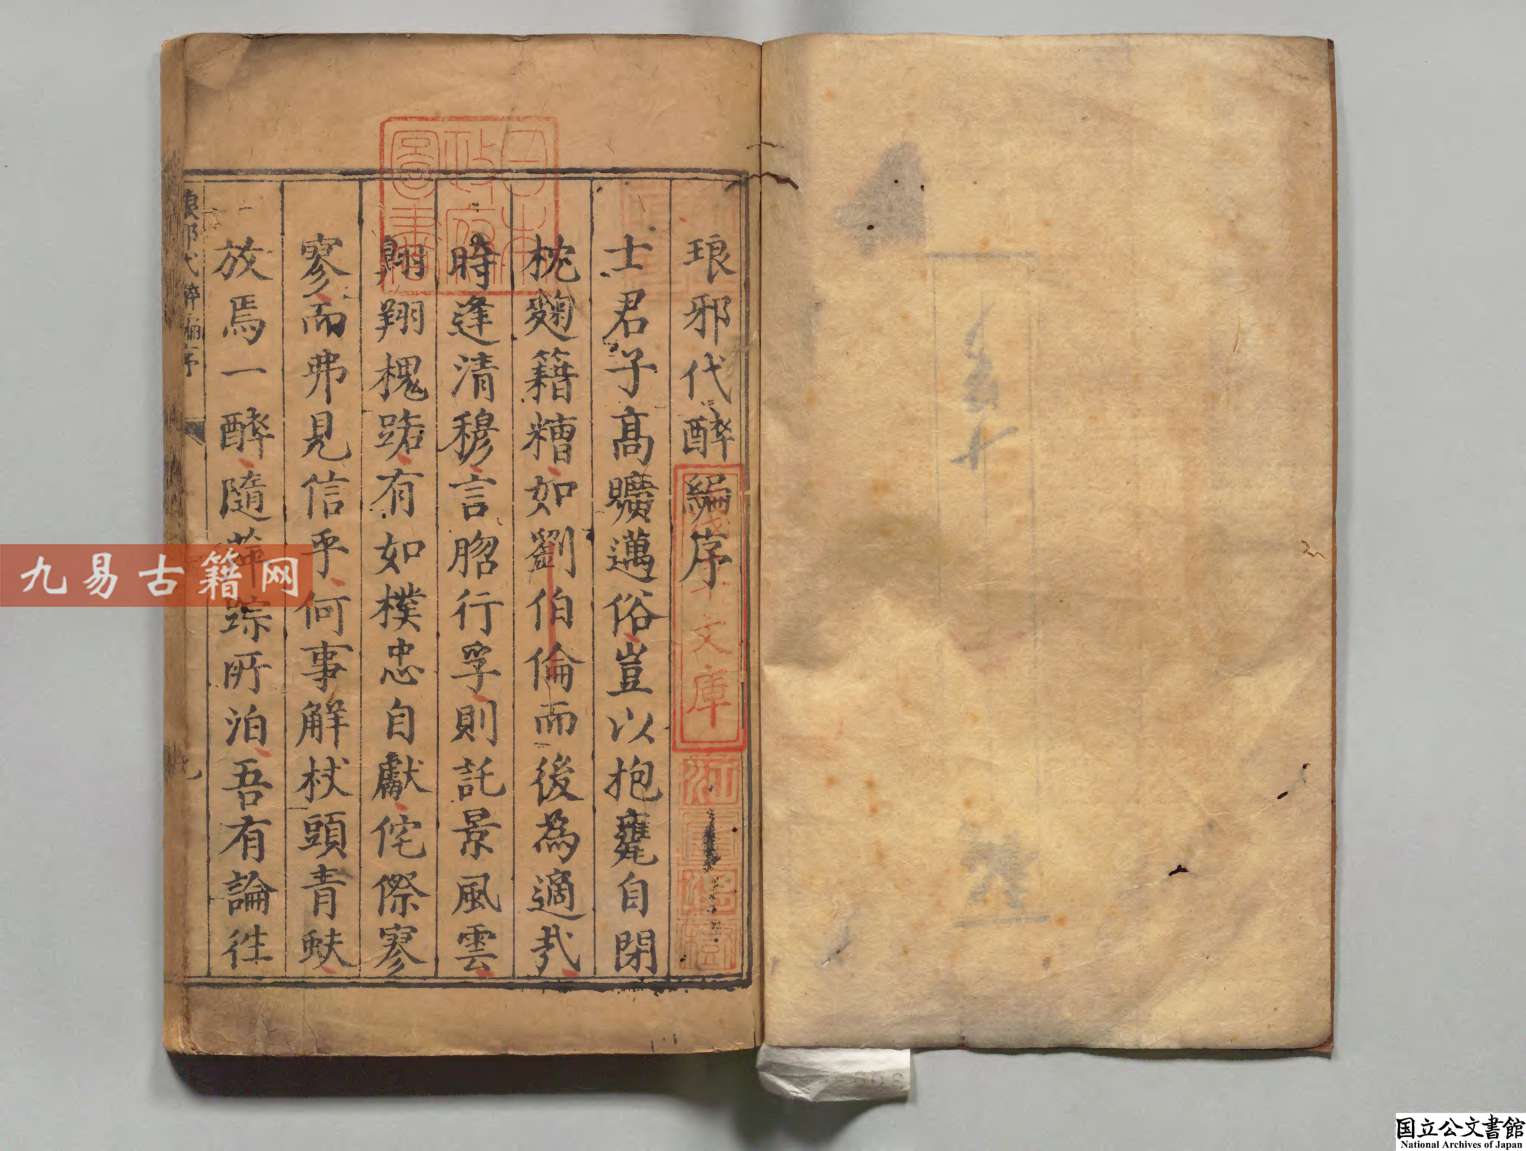 琅邪代醉編序
士君子高曠邁俗豈以抱甕自閉
枕麴籍糟如劉伯倫而後為適哉
時逢清穆言朙行孚則託景風雲
翱翔槐路有如樸忠自獻侘傺寥
寥而弗見信乎何事解杖頭青蚨
放焉一醉隨萍踪所泊吾有論往
琅邪代醉編序
日本
政府
圖書
文庫
九易古籍网
国立公文書館
National Archives of Japan